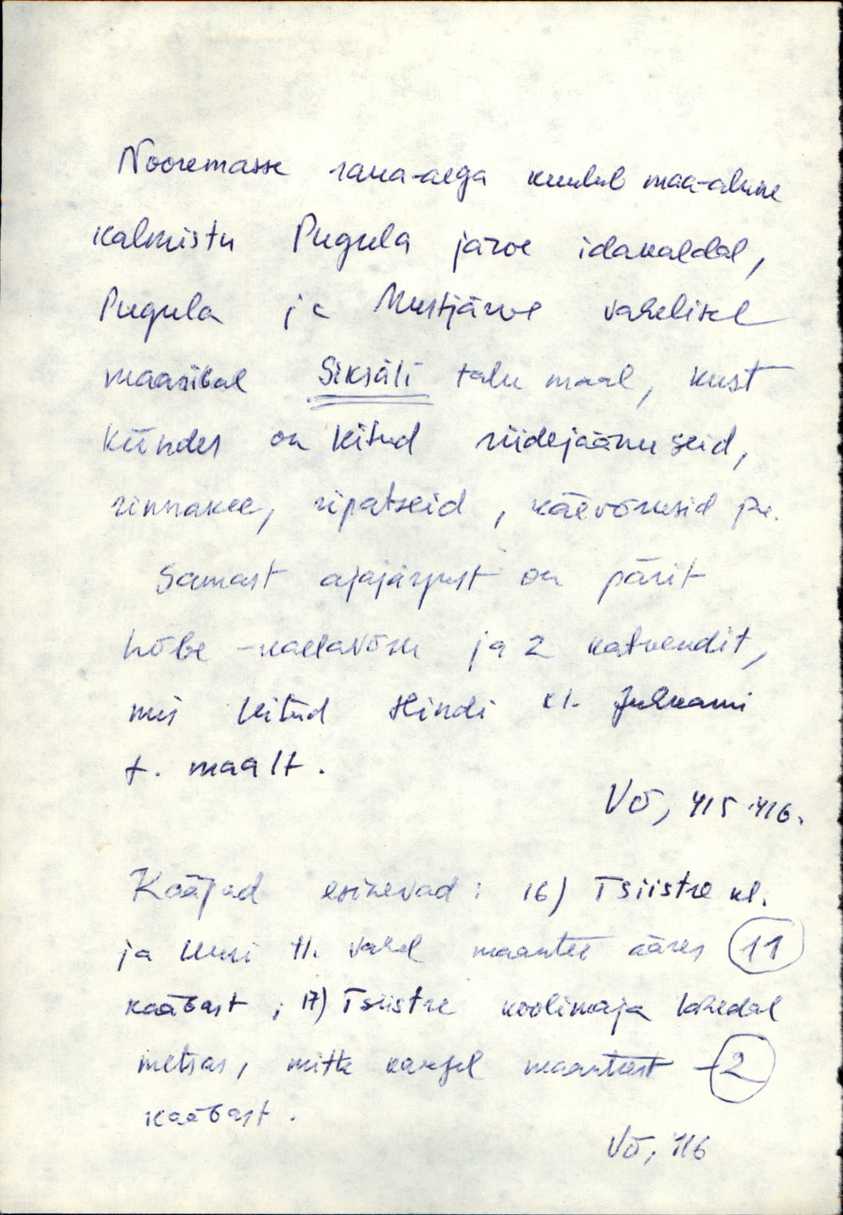 Nooremasse raua-aega kuulub maa-alune
kalmistu Pugula järve idakaldal,
Pugula ja Mustjärve vahelisel
maaribal Siksäli talu maal, kust
kündes on leitud riidejäänuseid,
rinnakee, ripatseid, käevõrusid jne.
Samast ajajärgust on pärit
hõbe-kaelavõru ja 2 katkendit,
mis leitud Hindi kl. Juhkami
t. maalt.
Võ, 415-416.
Kääpad esinevad: 16) Tsiistre kl.
ja Uusi tl. vahel maantee ääres 11
kääbast; 17) Tsiistre koolimaja lähedal
metsas, mitte kaugel maanteest - 2
kääbast.
Võ, 416